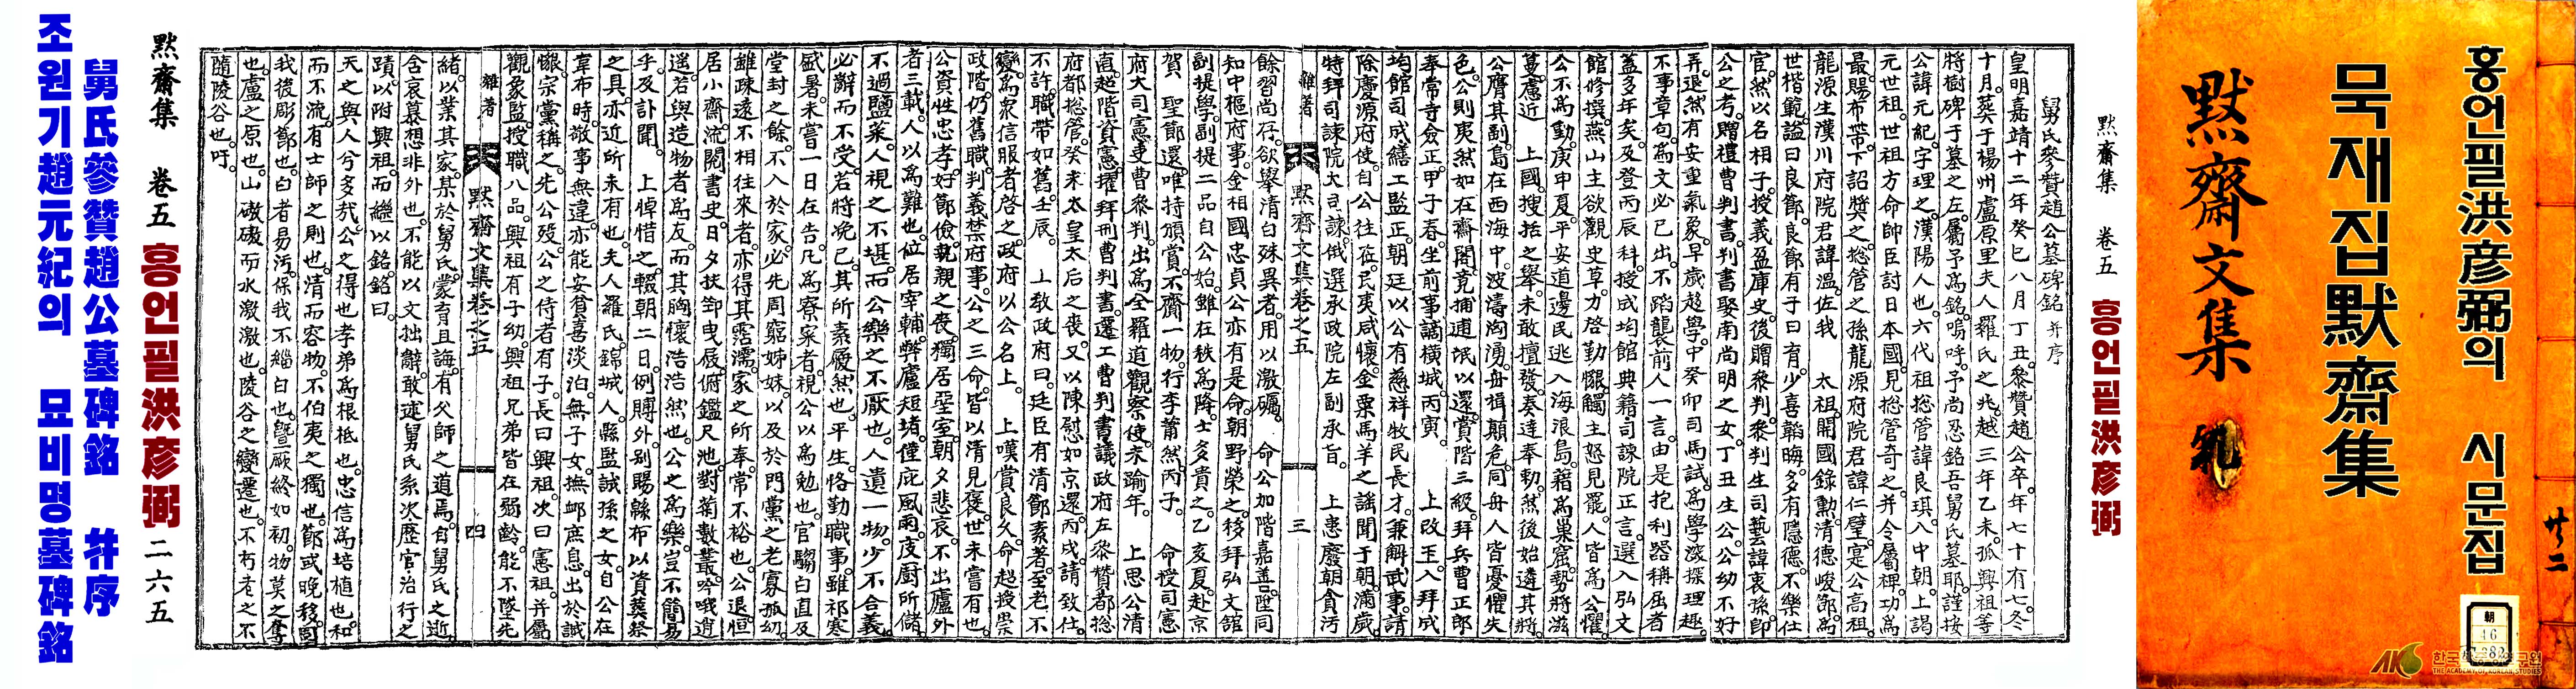 홍언필洪彦弼의 시문집
묵재집默齋集
默齋文集
卄二
朝
46
282
한국학중앙연구원
THE ACADEMY OF KOREAN STUDIES
默齋集 卷五 홍언필洪彦弼
舅氏參贊趙公墓碑銘 并序
皇明嘉靖十二年癸巳八月丁丑。叅贊趙公卒。年七十有七。冬
十月。葬于楊州盧原里夫人羅氏之兆。越三年乙未。孤興祖等
將樹碑于墓之左。屬予爲銘。嗚呼。予尚忍銘吾舅氏墓耶。謹按
公諱元紀。字理之。漢陽人也。六代祖摠管諱良琪。八中朝。上謁
元世祖。世祖方命帥臣討日本國。見摠管奇之。并令屬禆。功爲
最。賜布帶。下詔奬之。摠管之孫龍源府院君諱仁璧。寔公高祖。
龍源生漢川府院君諱溫。佐我 太祖。開國錄勲。清德峻節。爲
世楷範。謚曰良節。良節有子曰育。少喜韜晦。多有隱德。不樂仕
官。然以名相子。授義盈庫史。後贈叅判。叅判生司藝諱衷孫。卽
公之考。贈禮曹判書。判書娶南尚明之女。丁丑生公。公幼不好
弄。退然有安重氣象。早歲趍學。中癸卯司馬試。爲學深探理趣。
不事章句。爲文必已出。不蹈襲前人一言。由是抱利器稱屈者
蓋多年矣。及登丙辰科。授成均館典籍。司諫院正言。選入弘文
館修撰。燕山主欲觀史草。力啓勤懇。觸主怒見罷。人皆爲公懼。
公不爲動。庚申夏。平安道邊民逃入海浪島。藉爲巢窟。勢將滋
蔓。慮近 上國。搜括之擧未敢擅發。奏達奉勅。然後始遴其將。
公膺其副。島在西海中。波濤洶湧。舟楫顚危。同舟人皆憂懼失
色。公則夷然如在齋閤。竟捕逋氓以還。賞階三級。拜兵曹正郎
奉常寺僉正。甲子春。坐前事謫橫城。丙寅。 上改玉。入拜成
均館司成繕工監正。朝廷以公有慈祥牧民長才。兼斛武事。請
除慶源府使。自公往莅。民夷咸懷。金粟馬羊之謠聞于朝。滿歲。
特拜司諫院大司諫。俄選承政院左副承旨。 上患廢朝貪汚
餘習尚存。欲擧清白殊異者。用以激礪。 命公加階嘉善。陞同
知中樞府事。金相國忠貞公亦有是命。朝野榮之。移拜弘文館
副提學。副提二品自公始。雖在秩爲降。士多貴之。乙亥夏。赴京
賀 聖節還。唯持頒賞。不齎一物。行李蕭然。丙子。 命授司憲
府大司憲。吏曹叅判。出爲全羅道觀察使。未踰年。 上思公清
直。超階資憲。擢拜刑曹判書。遷工曹判書議政府左叅贊。都摠
府都摠管。癸未。太皇太后之喪。又以陳慰如京還。丙戌。請致仕。
不許。職帶如舊。壬辰。 上敎政府曰。廷臣有清節素著。至老不
變。爲衆信服者啓之。政府以公名上。 上嘆賞良久。命超授崇
政階。仍舊職判義禁府事。公之三命。皆以清見褒。世未嘗有也。
公資性忠孝。好節儉。執親之喪。獨居堊室。朝夕悲哀。不出廬外
者三載。人以爲難也。位居宰輔。弊廬短堵。僅庇風雨。庋廚所儲
不過鹽菜。人視之不堪。而公樂之不厭也。人遺一物。少不合義
必辭而不受。若將浼已。其所素履然也。平生恪勤職事。雖祁寒
盛暑。未嘗一日在告。凡爲寮寀者。視公以爲勉也。官騶白直及
堂封之餘。不入於家。必先周窮姊妹。以及於門黨之老寡孤幼
雖疎遠不相往來者。亦得其霑濡。家之所奉。常不裕也。公退恒
居小齋。流閱書史。日夕扶節曳屐。俯鑑尺池。對菊數叢。吟哦逍
遥。若與造物者爲友。而其胸懷浩浩然也。公之爲樂。豈不簡易
乎。及訃聞。 上悼惜之。輟朝二日。例賻外。別賜緜布以資葬祭
之具。亦近所未有也。夫人羅氏。錦城人。縣監誠孫之女。自公在
韋布時。敬事無違。亦能安貧喜淡泊。無子女。撫邺庶息。出於誠
懇。宗黨稱之。先公歿。公之侍者有子。長曰興祖。次曰憲祖。并屬
觀象監。授職八品。興祖有子幼。興祖兄弟皆在弱齡。能不墜先
緖。以業其家。某於舅氏。蒙育且誨。有父師之道焉。自舅氏之逝。
含哀慕想非外也。不能以文拙辭。敢述舅氏系次歷官。治行之
蹟。以附興祖。而繼以銘。銘曰。
天之與人兮多哉。公之得也。孝弟爲根柢也。忠信爲培植也。和
而不流。有士師之則也。清而容物。不伯夷之獨也。節或晚移。
我後彫節也。白者易汚。保我不緇白也。曁厥終如初。物莫之奪
也。盧之原也。山磝磝而水激激也。陵谷之變遷也。不朽者之不
隨陵谷也。吁。
雜著 默齋文集卷之五 三
雜著 默齋文集卷之五 四
默齋集 卷五 홍언필洪彦弼 二六五
舅氏參贊趙公墓碑銘 幷序
조원기趙元紀의 묘비명墓碑銘